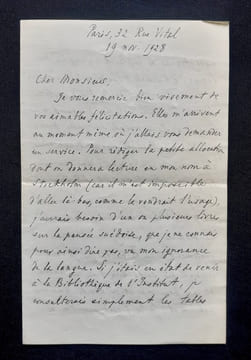 Paris, 32 Rue Vital
19 nov. 1928
Cher Monsieur,
Je vous remercie bien vivement de
vos aimables félicitations. Elles m'arrivent
au moment même où j'allais vous demander
un service. Pour rédiger la petite allocution
dont on donnera lecture en mon nom à
Stockholm (car il m'est impossible
d'aller là-bas, comme le voudrait l'usage),
j'aurais besoin d'un ou plusieurs livres
sur la pensée suédoise, que je ne connais
pour ainsi dire pas, vu mon ignorance
de la langue. Si j'étais en état de venir
à la Bibliothèque de l'Institut, je
consulterais simplement les tables